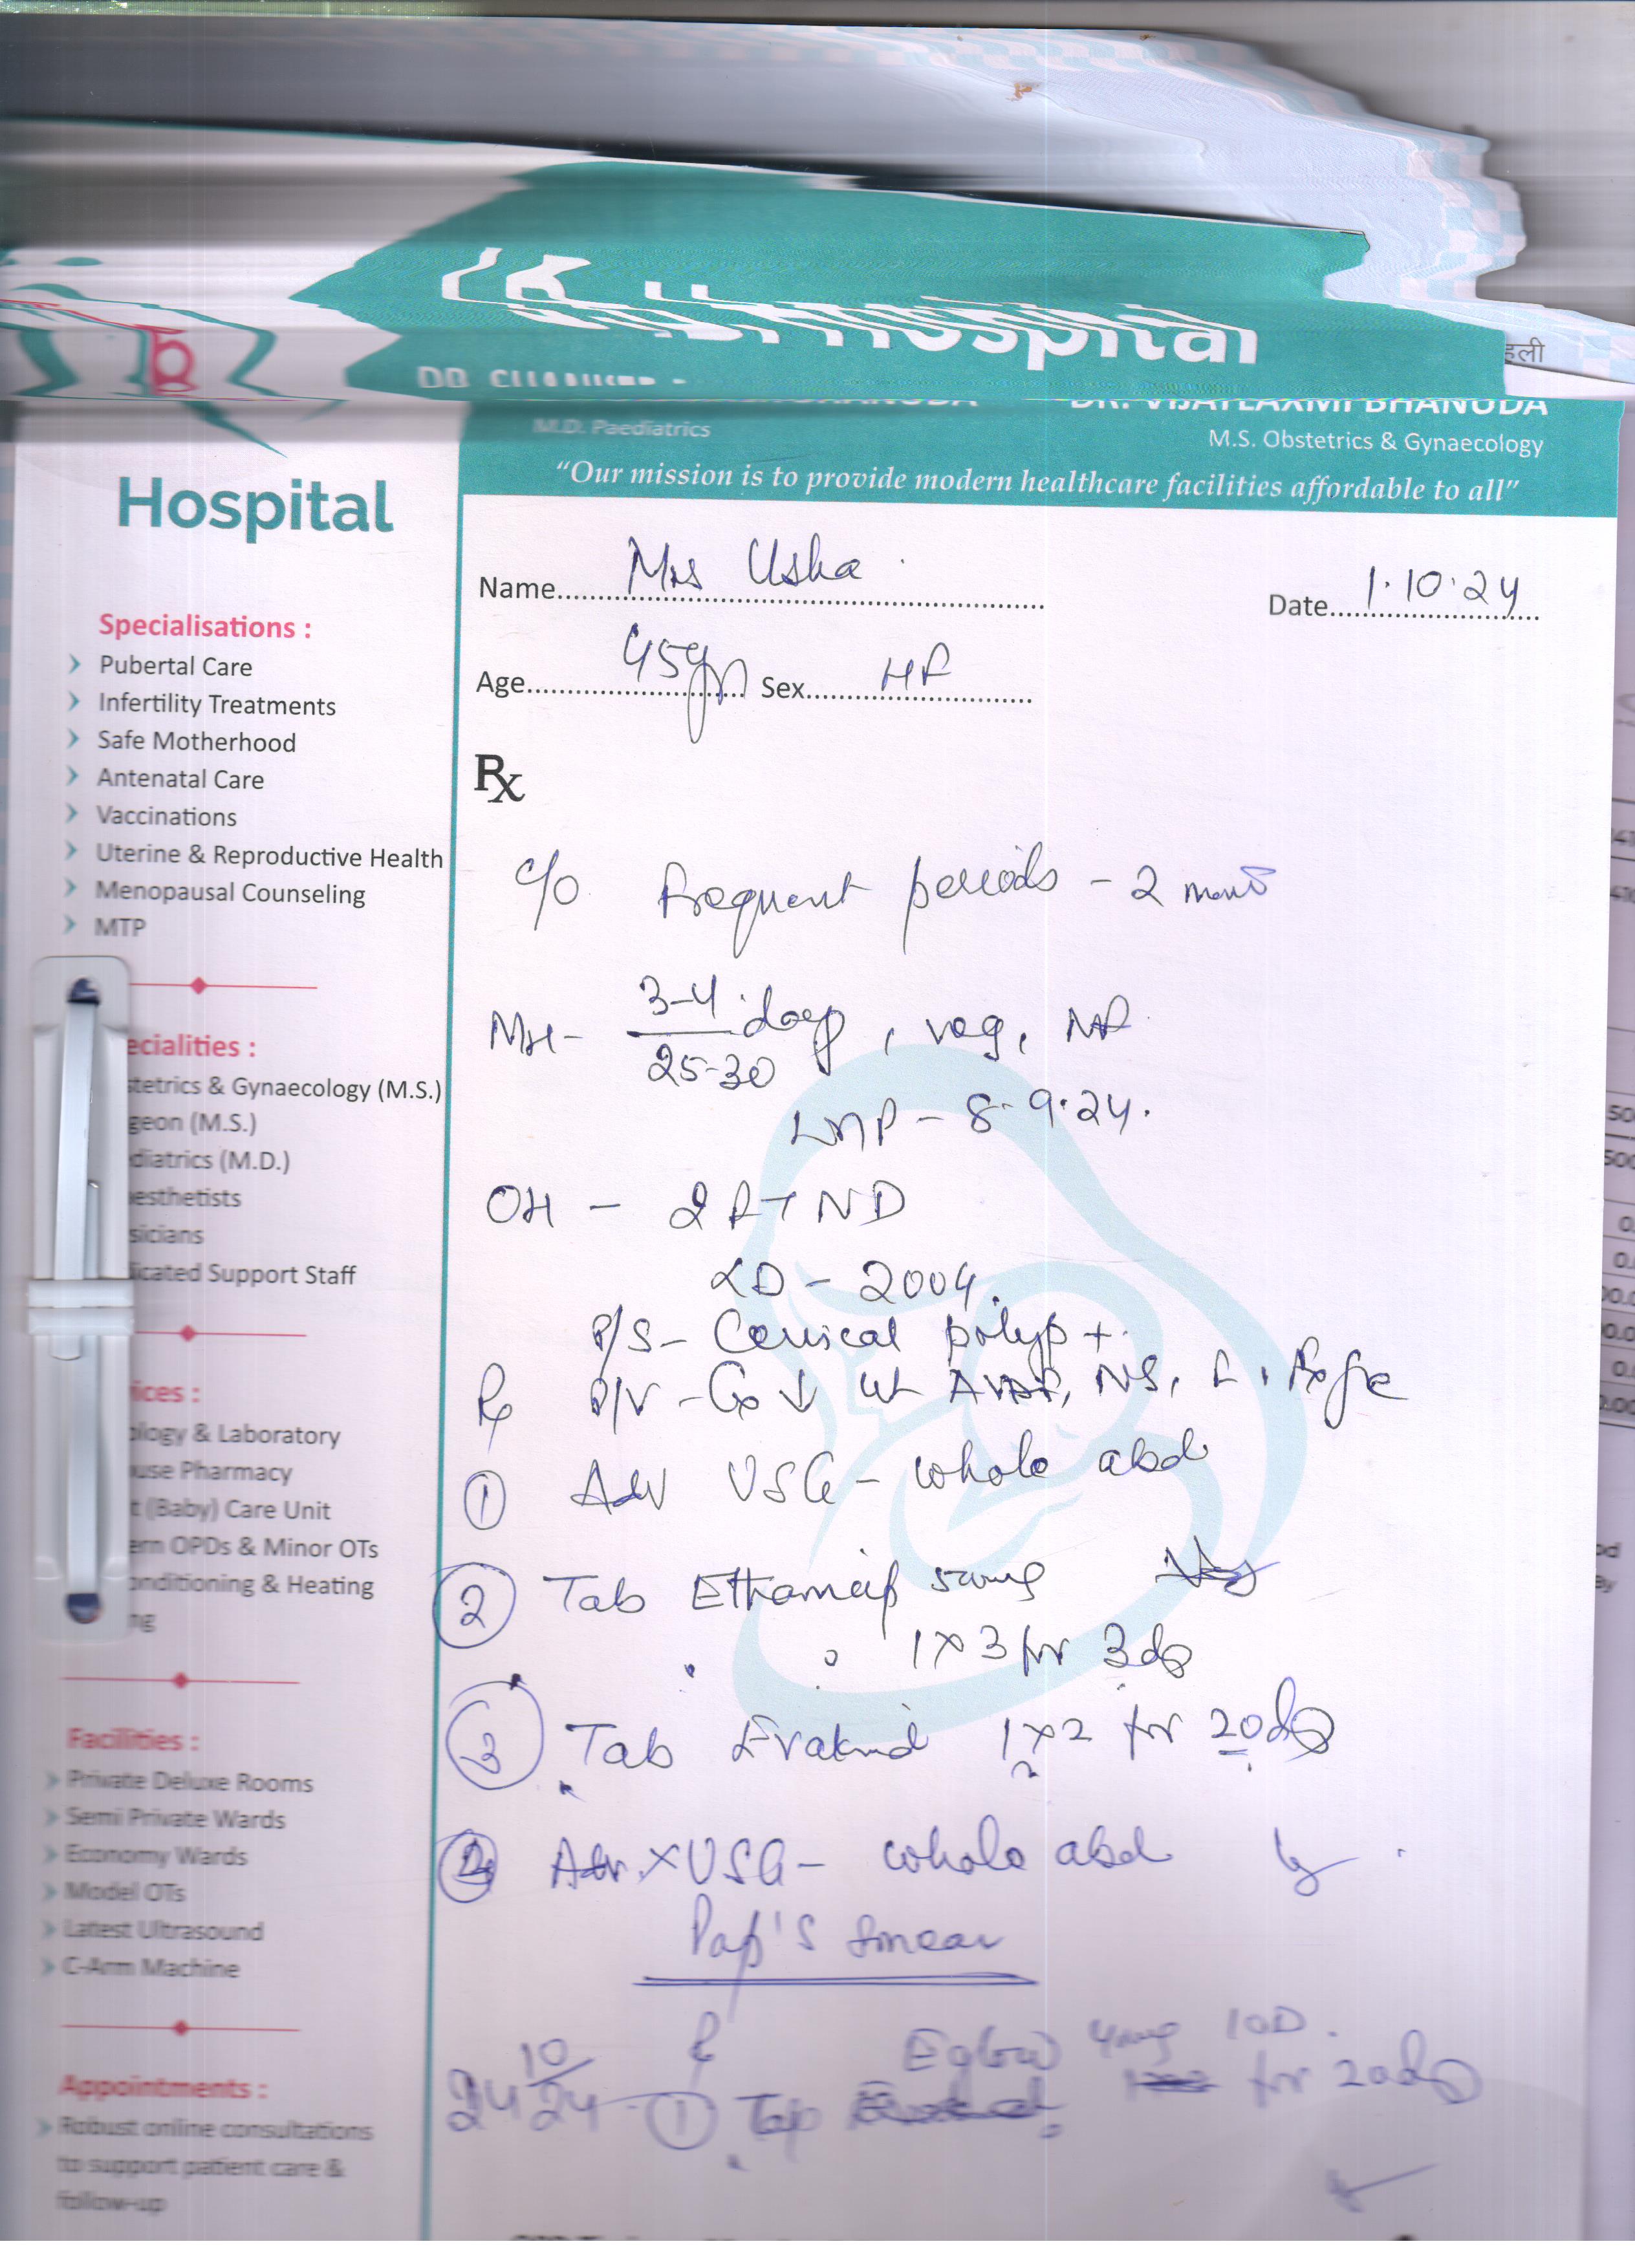 Hospital
हली
M.D. Paediatrics
DR. VIJAYLAXMI BHANUDA
M.S. Obstetrics & Gynaecology
"Our mission is to provide modern healthcare facilities affordable to all"
Hospital
Name Mrs Usha
Date 1.10.24
Age 45yrs Sex
Rx
Specialisations :
Pubertal Care
Infertility Treatments
Safe Motherhood
Antenatal Care
Vaccinations
Uterine & Reproductive Health
Menopausal Counseling
MTP
ecialities :
tetrics & Gynaecology (M.S.)
geon (M.S.)
diatrics (M.D.)
esthetists
sicians
icated Support Staff
ices :
ology & Laboratory
use Pharmacy
t (Baby) Care Unit
ern OPDs & Minor OTs
onditioning & Heating
ng
Facilities :
Private Deluxe Rooms
Semi Private Wards
Economy Wards
Model OTs
Latest Ultrasound
C-Arm Machine
Appointments :
Robust online consultations
to support patient care &
follow-up
c/o Frequent periods - 2
MH - 3-4 days, reg,
25-30
LMP - 8.9.24.
OH - 2 FTND
LD - 2004.
P/S - Cervical polyp +
P/V - Cx ↓ ut
① Adv USG - whole abd
② Tab
1 x 3 for 3
③ Tab 1x2 for 20
USG - whole abd
Pap's Smear
24 10/24 - ① for 20